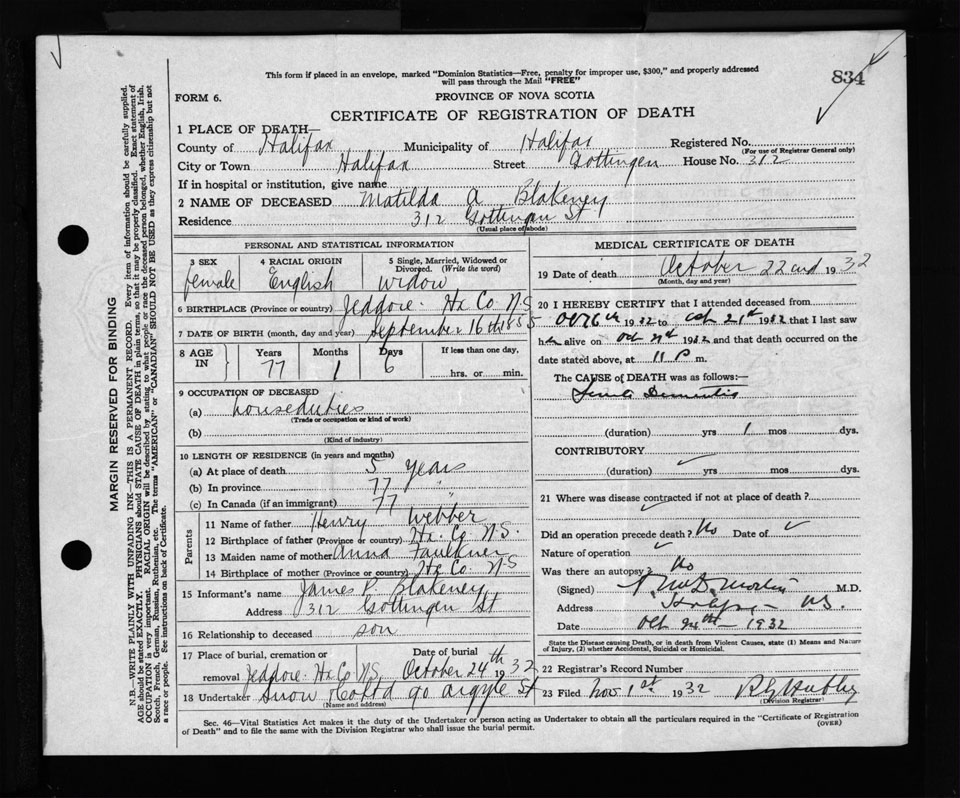 This form if placed in an envelope, marked "Dominion Statistics—Free, penalty for improper use, $300," and properly addressed
will pass through the Mail "FREE"
834
FORM 6.
PROVINCE OF NOVA SCOTIA
CERTIFICATE OF REGISTRATION OF DEATH
1 PLACE OF DEATH—
County of Halifax Municipality of Halifax Registered No.
(For use of Registrar General only)
City or Town Halifax Street Gottingen House No. 312
If in hospital or institution, give name
2 NAME OF DECEASED Matilda A Blakeney
Residence 312 Gottingen St
(Usual place of abode)
PERSONAL AND STATISTICAL INFORMATION
3 SEX 4 RACIAL ORIGIN 5 Single, Married, Widowed or Divorced. (Write the word)
female English Widow
6 BIRTHPLACE (Province or country) Jeddore. Hx Co N-S
7 DATE OF BIRTH (month, day and year) September 16th 1855
8 AGE IN Years Months Days If less than one day,
77 1 6 hrs. or min.
9 OCCUPATION OF DECEASED
(a) houseduties
(Trade or occupation or kind of work)
(b)
(Kind of industry)
10 LENGTH OF RESIDENCE (in years and months)
(a) At place of death 5 years
(b) In province 77 "
(c) In Canada (if an immigrant) 77 "
Parents
11 Name of father Henry Webber
12 Birthplace of father (Province or country) Hx. Co N.S.
13 Maiden name of mother Anna Faulkner
14 Birthplace of mother (Province or country) Hx Co N-S
15 Informant's name James P. Blakeney
Address 312 Gottingen St
16 Relationship to deceased son
17 Place of burial, cremation or Date of burial
removal Jeddore. Hx Co N.S. October 24th 1932
18 Undertaker Snow & Co Ltd 90 argyle St
(Name and address)
MEDICAL CERTIFICATE OF DEATH
19 Date of death October 22nd 1932
(Month, day and year)
20 I HEREBY CERTIFY that I attended deceased from
Oct 6th 1932 to Oct 21st 1932 that I last saw
her alive on Oct 1932 and that death occurred on the
date stated above, at 11 P m.
The CAUSE of DEATH was as follows:—
Senile Dementia
(duration) yrs 1 mos dys.
CONTRIBUTORY
(duration) yrs mos dys.
21 Where was disease contracted if not at place of death?
Did an operation precede death? No Date of
Nature of operation
Was there an autopsy? No
(Signed) M.D.
Address Halifax N.S.
Date Oct 24th 1932
State the Disease causing Death, or in death from Violent Causes, state (1) Means and Nature
of Injury, (2) whether Accidental, Suicidal or Homicidal.
22 Registrar's Record Number
23 Filed Nov 1st 1932
(Division Registrar)
Sec. 46—Vital Statistics Act makes it the duty of the Undertaker or person acting as Undertaker to obtain all the particulars required in the "Certificate of Registration
of Death" and to file the same with the Division Registrar who shall issue the burial permit.
(OVER)
MARGIN RESERVED FOR BINDING
N.B.—WRITE PLAINLY WITH UNFADING INK—THIS IS A PERMANENT RECORD. Every item of information should be carefully supplied.
AGE should be stated EXACTLY. PHYSICIANS should STATE CAUSE OF DEATH in plain terms, so that it may be properly classified. Exact statement of
OCCUPATION is very important. RACIAL ORIGIN will be described by stating to what people or race the deceased person belonged, whether English, Irish,
Scotch, French, German, Russian, Ruthenian, etc. The terms "AMERICAN" or "CANADIAN" SHOULD NOT BE USED as they express citizenship but not
a race or people. See instructions on back of Certificate.